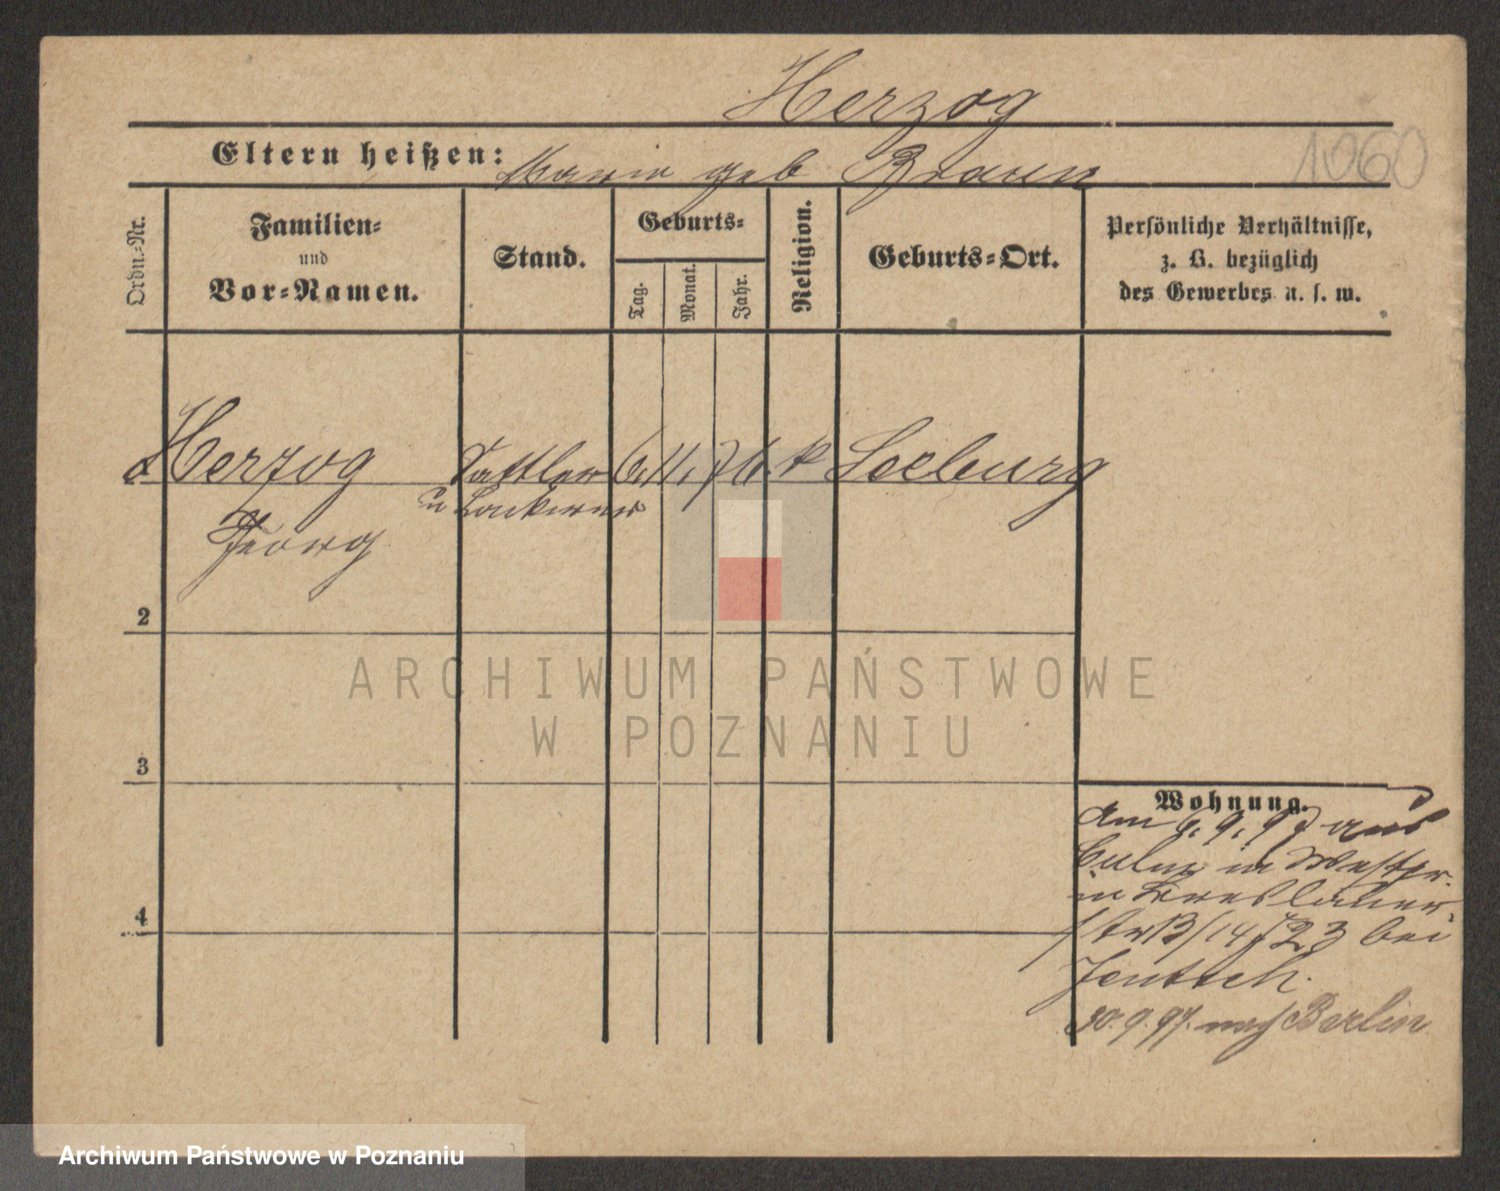 Herzog
Eltern heißen: Marie geb Braun
1060
Ordn.-Nr.
Familien-
und
Vor-Namen.
Stand.
Geburts-
Tag.
Monat.
Jahr.
Religion.
Geburts-Ort.
Persönliche Verhältnisse,
z. B. bezüglich
des Gewerbes u. s. w.
Herzog Sattler 6. 11. 76. k Seeburg
u Lackierer
Georg
2
3
4
Wohnung.
Am 6. 9. 97 aus
Culm in Westpr.
in Breslauer
str 13/14 bei
Jentsch.
30. 9. 97. nach Berlin
ARCHIWUM PAŃSTWOWE
W POZNANIU
Archiwum Państwowe w Poznaniu